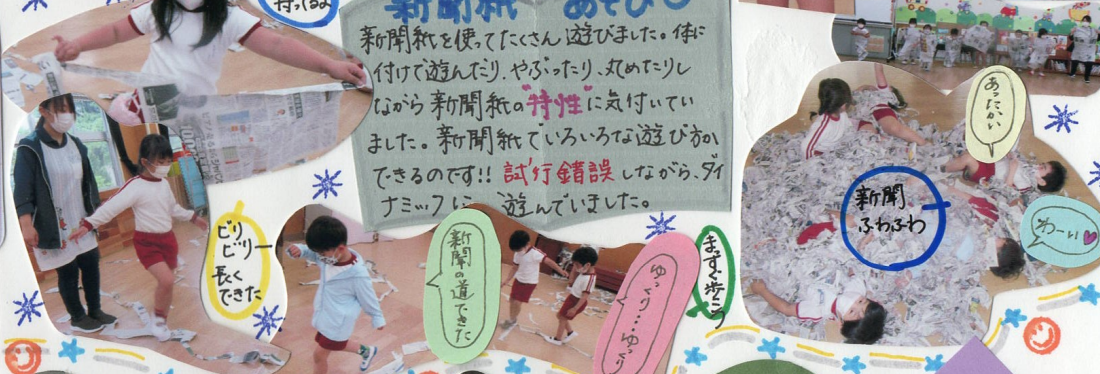 持ってるよ
新聞紙あそび
新聞紙を使ってたくさん遊びました。体に
付けて遊んだり、やぶったり、丸めたりし
ながら新聞紙の"特性"に気付いてい
ました。新聞紙でいろいろな遊び方が
できるのです!! 試行錯誤しながら、ダイ
ナミックに 遊んでいました。
ビリ
ビリー
長く
できた
新聞の道できた
ゆっくり…ゆっくり
まっすぐ歩こう
あったかい
新聞
ふわふわ
わーい